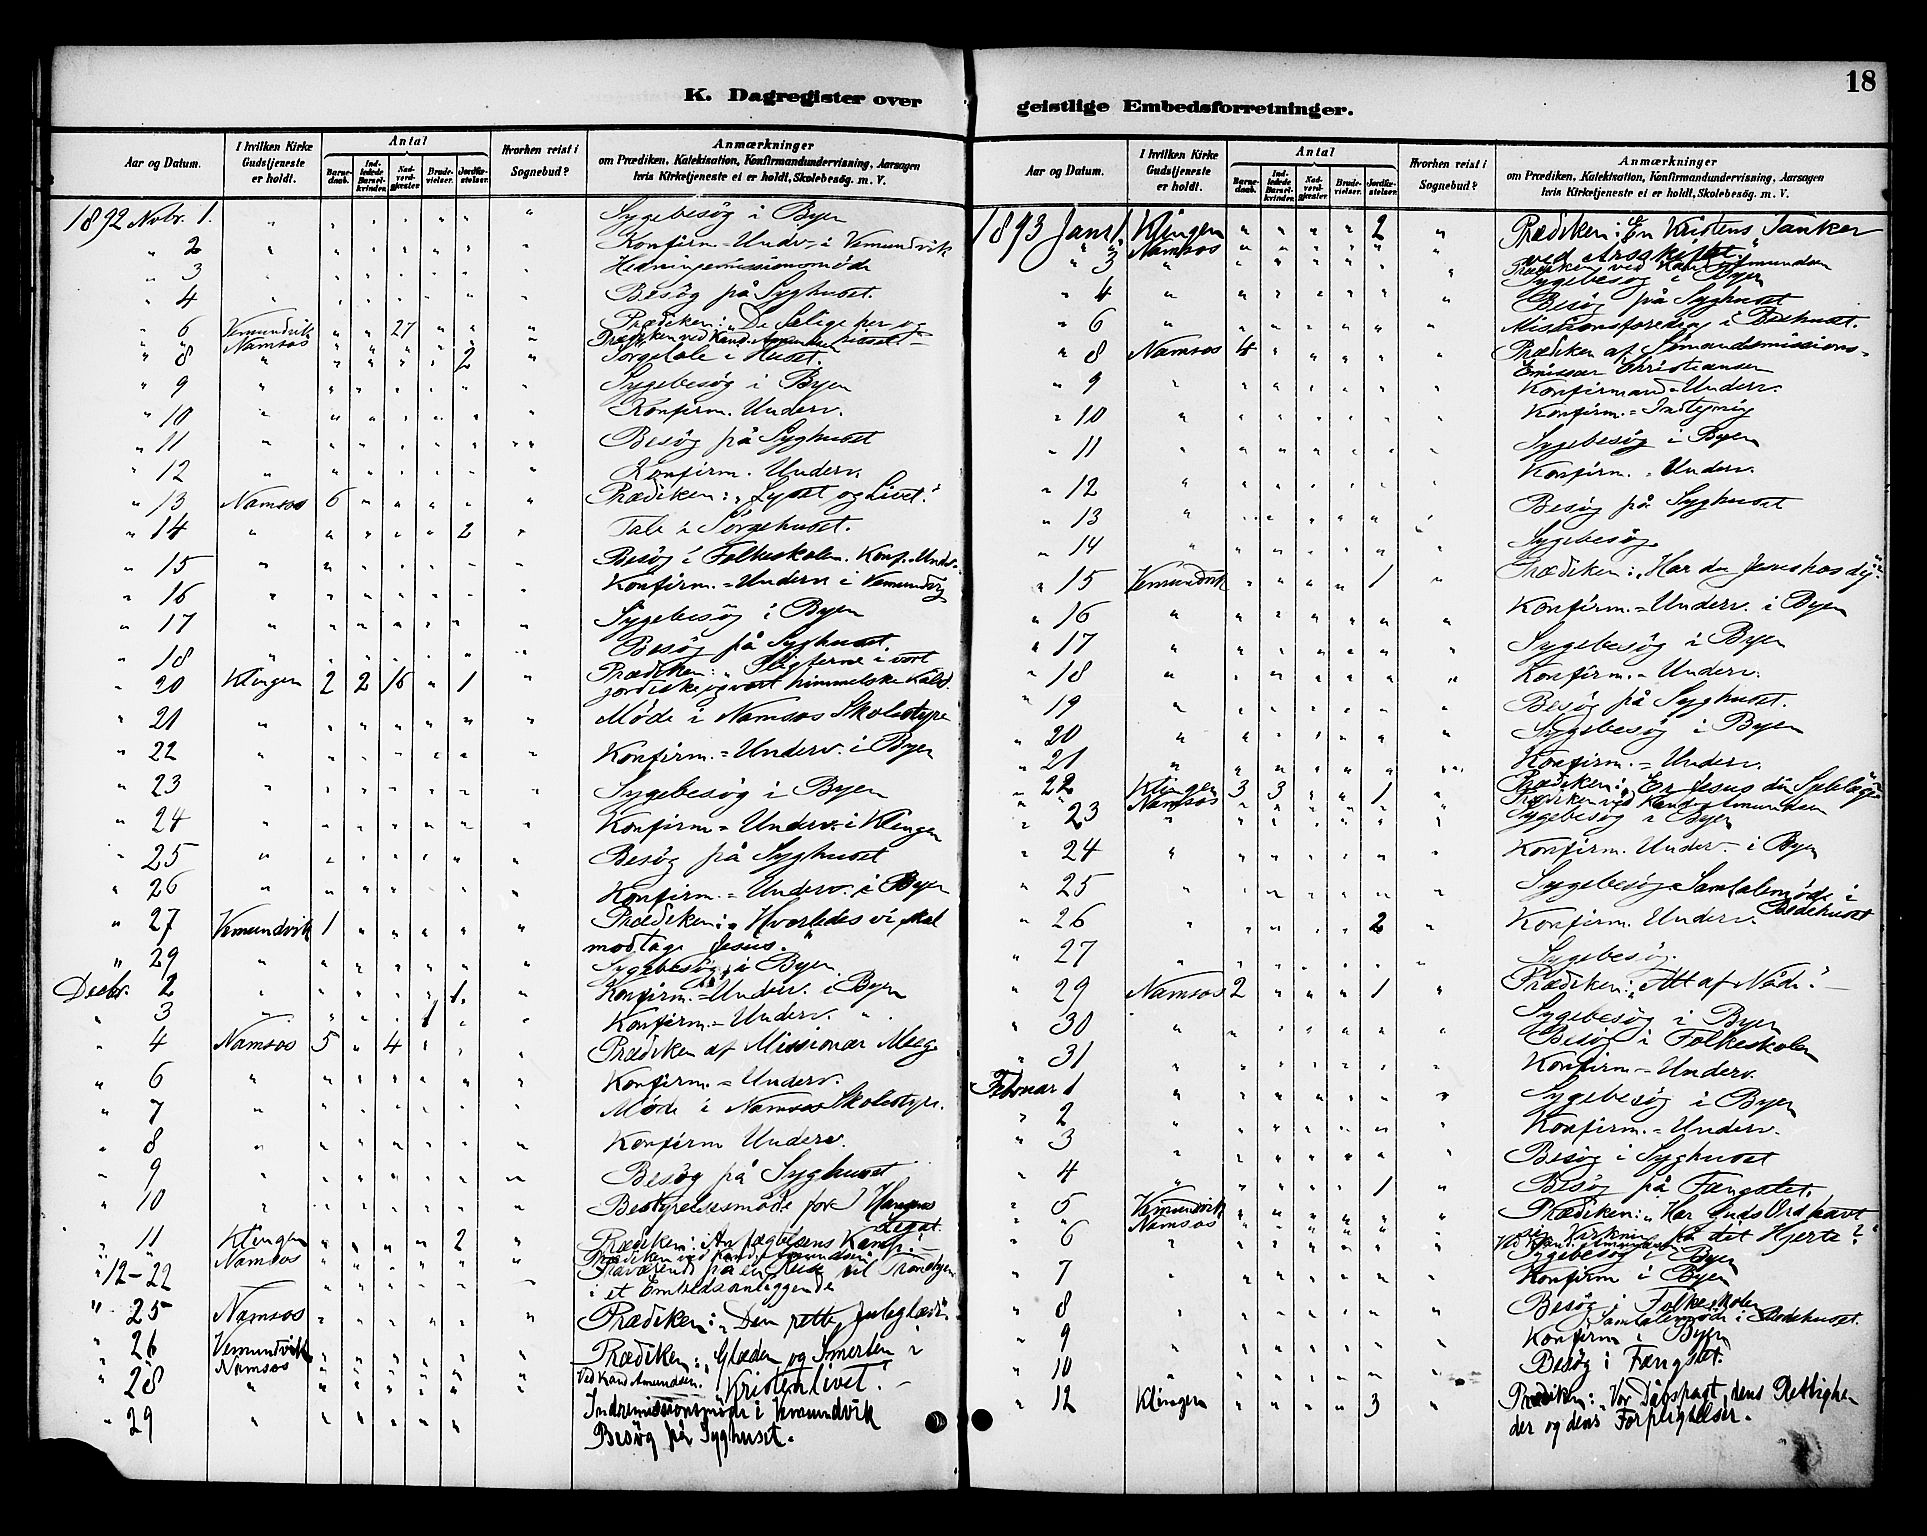 18
K. Dagregister over geistlige Embedsforretninger.
Aar og Datum.
I hvilken Kirke Gudstjeneste er holdt.
Antal
Barnedaab.
Indledede Barselkvinder.
Nadverdgjæster.
Brudevielser.
Jordfæstelser.
Hvorhen reist i Sognebud?
Anmærkninger
om Prædiken, Katekisation, Konfirmandundervisning, Aarsagen
hvis Kirketjeneste ei er holdt, Skolebesøg. m. V.
1892 Novbr. 1. Sygebesøg i Byen
" 2 Konfirm.-Underv. i Vemundvik
" 3 Hedningemissionsmøde
" 4 Besøg på Syghuset.
" 6 Vemundvik 27 Prædiken: "De Salige her og
" " Namsos Prædiken ved Kand. Amundsen
" 8 2 Sørgetale i Huset.
" 9 Sygebesøg i Byen
" 10 Konfirm. Underv.
" 11 Besøg på Syghuset
" 12 Konfirm. Underv.
" 13 Namsos 6 Prædiken: "Lyset og Livet."
" 14 2 Tale i Sørgehuset.
" 15 Besøg i Folkeskolen. Konf. Underv.
" 16 Konfirm.=Underv i Vemundvig
" 17 Sygebesøg i Byen
" 18 Besøg på Syghuset.
" 20 Klingen 2 2 16 " 1 Prædiken: " i vort
jordiske og vort himmelske Kald.
" 21 Møde i Namsos Skolestyre
" 22 Konfirm.=Underv. i Byen
" 23 Sygebesøg i Byen
" 24 Konfirm=Underv. i Klingen
" 25 Besøg på Syghuset
" 26 Konfirm.=Underv. i Byen
" 27 Vemundvik 1 Prædiken: "Hvorledes vi skal
modtage Jesus."
" 29 Sygebesøg i Byen
Decbr. 2 1. Konfirm.=Underv. i Byen
" 3 1 Konfirm.-Underv. "
" 4 Namsos 5 " 4 Prædiken af Missionær
" 6 Konfirm.=Underv.
" 7 Møde i Namsos Skolestyre.
" 8 Konfirm Underv.
" 9 Besøg på Syghuset
" 10 Bestyrelsesmøde for
Legat.
" 11 Klingen 2 Prædiken: Anfægtelsens Kamp
" " Namsos Prædiken ved Kand. Amundsen
" 12-22 Fraværende på en Reise til Trondhjem
i et Embedsanliggende
" 25 Namsos Prædiken: "Den rette Juleglæde."
" 26 Vemundvik Prædiken: "Glæden og Smerten i
" " Namsos Ved Kand Amundsen. Kristenlivet."
" 28 Indremissionsmøde i Vemundvik
" 29 Besøg på Syghuset.
Aar og Datum.
I hvilken Kirke Gudstjeneste er holdt.
Antal
Barnedaab.
Indledede Barselkvinder.
Nadverdgjæster.
Brudevielser.
Jordfæstelser.
Hvorhen reist i Sognebud?
Anmærkninger
om Prædiken, Katekisation, Konfirmandundervisning, Aarsagen
hvis Kirketjeneste ei er holdt, Skolebesøg. m. V.
1893 Janr 1. Klingen 2 Prædiken: "En Kristens Tanker
ved Årsskiftet."
" " Namsos Prædiken ved Kand Amundsen
" 3 Sygebesøg i Byen
" 4 Besøg på Syghuset
" 6 Missionsforedrag i Bedehuset.
" 8 Namsos 4 Prædiken af Sømandsmissions=
Emissær Christiansen
" 9 Konfirmand=Underv.
" 10 Konfirm.=
" 11 Sygebesøg i Byen
" 12 Konfirm.=Underv.
" 13 Besøg på Syghuset
" 14 Sygebesøg.
" 15 Vemundvik 1 Prædiken: "Har du Jesus hos dig?"
" 16 Konfirm.=Underv. i Byen
" 17 Sygebesøg i Byen
" 18 Konfirm.-Underv.
" 19 Besøg på Syghuset.
" 20 Sygebesøg i Byen
" 21 Konfirm.=Underv.
" 22 Klingen 3 3 " " 1 Prædiken: "Er Jesus din Sjælelæge"
" " Namsos Prædiken ved Kand. Amundsen
" 23 Sygebesøg i Byen
" 24 Konfirm. Underv. i Byen
" 25 Sygebesøg. Samtalemøde i
Bedehuset
" 26 2 Konfirm. Underv.
" 27 Sygebesøg.
" 29 Namsos 2 " " " 1 Prædiken: "Alt af Nåde."
" 30 Sygebesøg i Byen
" 31 Besøg i Folkeskolen
Februar 1 Konfirm-Underv.
" 2 Sygebesøg i Byen
" 3 Konfirm.=Underv.
" 4 Besøg i Syghuset
1 Besøg på Fængslet.
" 5 Vemundvik Prædiken: "Har Guds Ord havt
sin Virkning på dit Hjerte?"
" " Namsos Ved Kand. Amundsen
" 6 Sygebesøg i Byen
" 7 Konfirm i Byen
" 8 Besøg i Folkeskolen
Samtalemøde i Bedehuset.
" 9 Konfirm i Byen
" 10 Besøg i Fængslet.
" 12 Klingen 3 Prædiken: "Vor Dåbspagt, dens Rettighe
der og dens Forpligtelser.